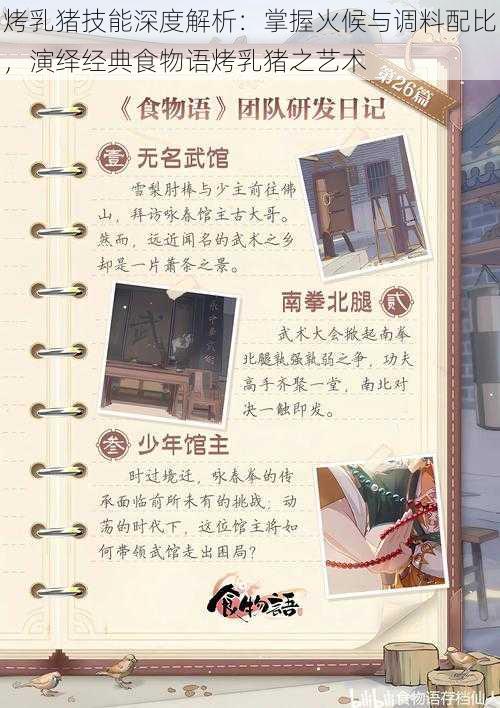 烤乳猪技能深度解析：掌握火候与调料配比
，演绎经典食物语烤乳猪之艺术
第26篇
《食物语》团队研发日记
壹 无名武馆
雪梨肘棒与少主前往佛
山，拜访咏春馆主古大哥。
然而，远近闻名的武术之乡
却是一片萧条之景。
南拳北腿 贰
武术大会掀起南拳
北腿孰强孰弱之争，功夫
高手齐聚一堂，南北对
决一触即发。
武
叁 少年馆主
时过境迁，咏春拳的传
承面临前所未有的挑战；动
荡的时代下，这位馆主将如
何带领武馆走出困局？
食物語
bilibili 食物语存档仙人